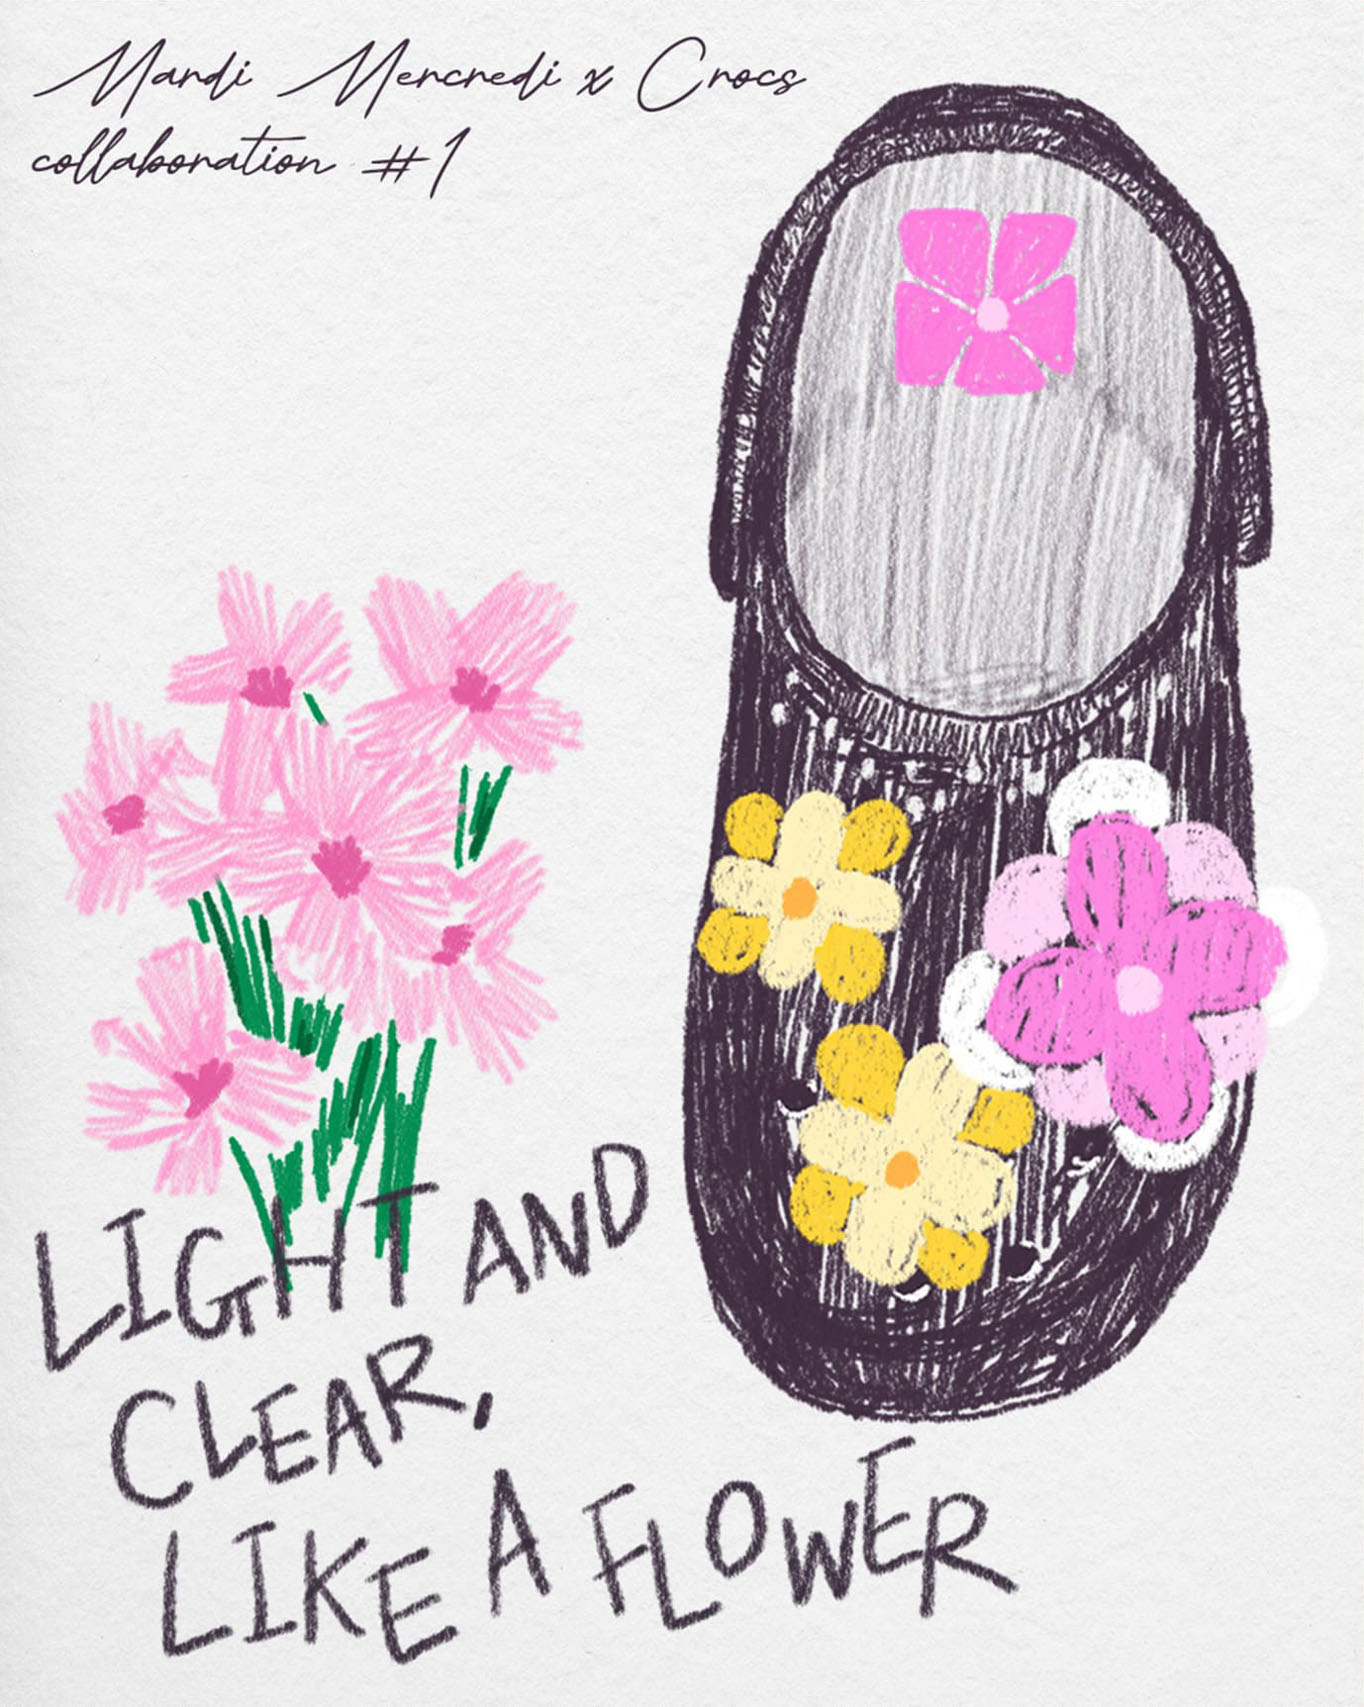 Mardi Mercredi x Crocs
collaboration #1
LIGHT AND
CLEAR,
LIKE A FLOWER